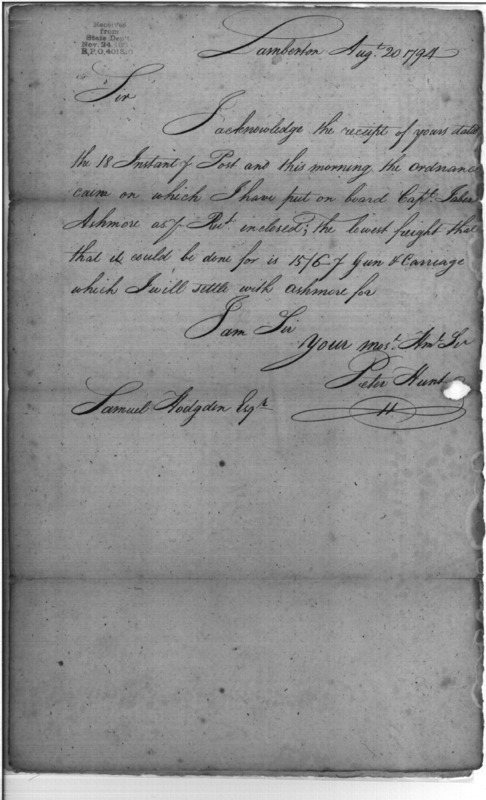 Received
from
State Dept.
Nov. 24,
R.P.O.
Lamberton Augt. 20 1794
Sir
I acknowledge the receipt of yours dated
the 18 Instant ⅌ Post and this morning the ordnance
came on which I have put on board Capt. Jabez
Ashmore as ⅌ Rect. inclosed; the lowest freight that
that it could be done for is 15/6 ⅌ Gun & Carriage
which I will settle with Ashmore for
I am Sir
Your most. Hml. Ser
Peter Hunt
Samuel Hodgdon Esqr.
H